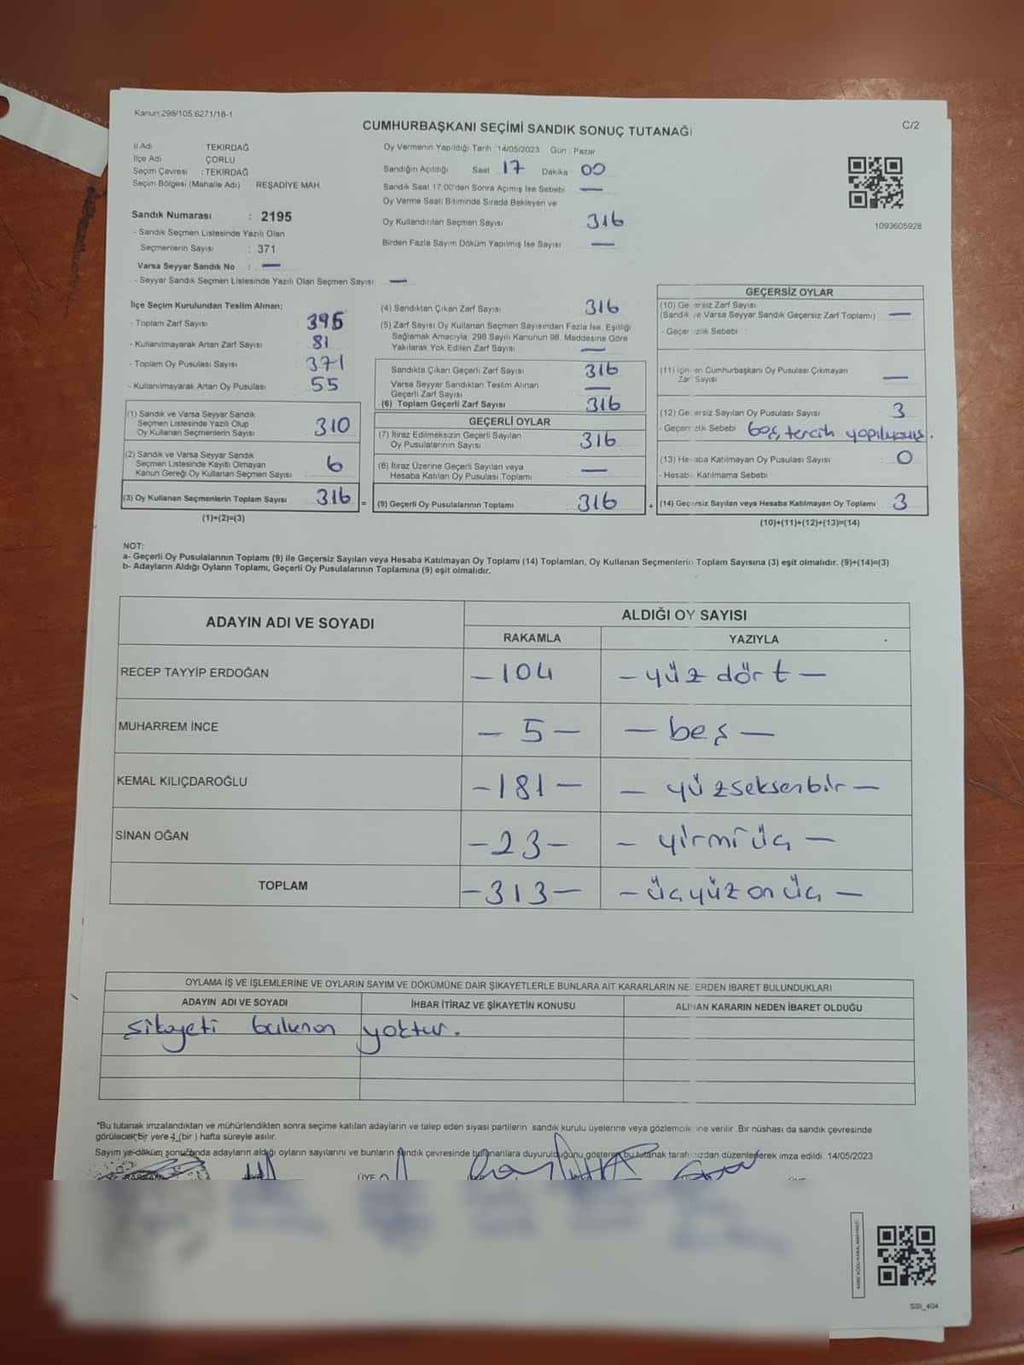 Kanun:298/105 6271/18-1
CUMHURBAŞKANI SEÇİMİ SANDIK SONUÇ TUTANAĞI
C/2
İl Adı TEKİRDAĞ
İlçe Adı ÇORLU
Seçim Çevresi : TEKİRDAĞ
Seçim Bölgesi (Mahalle Adı) REŞADİYE MAH.
Oy Vermenin Yapıldığı Tarih :14/05/2023 Gün : Pazar
Sandığın Açıldığı Saat 17 Dakika 00
Sandık Saat 17:00'den Sonra Açılmış İse Sebebi —
Oy Verme Saati Bitiminde Sırada Bekleyen ve
Oy Kullandırılan Seçmen Sayısı 316
Birden Fazla Sayım Döküm Yapılmış İse Sayısı —
1093605928
Sandık Numarası : 2195
- Sandık Seçmen Listesinde Yazılı Olan
Seçmenlerin Sayısı : 371
Varsa Seyyar Sandık No : —
- Seyyar Sandık Seçmen Listesinde Yazılı Olan Seçmen Sayısı —
İlçe Seçim Kurulundan Teslim Alınan;
- Toplam Zarf Sayısı 395
- Kullanılmayarak Artan Zarf Sayısı 81
- Toplam Oy Pusulası Sayısı 371
- Kullanılmayarak Artan Oy Pusulası 55
(1) Sandık ve Varsa Seyyar Sandık
Seçmen Listesinde Yazılı Olup
Oy Kullanan Seçmenlerin Sayısı 310
(2) Sandık ve Varsa Seyyar Sandık
Seçmen Listesinde Kayıtlı Olmayan
Kanun Gereği Oy Kullanan Seçmen Sayısı 6
(3) Oy Kullanan Seçmenlerin Toplam Sayısı 316 =
(1)+(2)=(3)
(4) Sandıktan Çıkan Zarf Sayısı 316
(5) Zarf Sayısı Oy Kullanan Seçmen Sayısından Fazla İse, Eşitliği
Sağlamak Amacıyla; 298 Sayılı Kanunun 98. Maddesine Göre
Yakılarak Yok Edilen Zarf Sayısı —
Sandıkta Çıkan Geçerli Zarf Sayısı 316
Varsa Seyyar Sandıktan Teslim Alınan
Geçerli Zarf Sayısı —
(6) Toplam Geçerli Zarf Sayısı 316
GEÇERLİ OYLAR
(7) İtiraz Edilmeksizin Geçerli Sayılan
Oy Pusulalarının Sayısı 316
(8) İtiraz Üzerine Geçerli Sayılan veya
Hesaba Katılan Oy Pusulaları Toplamı —
(9) Geçerli Oy Pusulalarının Toplamı 316 +
GEÇERSİZ OYLAR
(10) Ge ersiz Zarf Sayısı
(Sandık ve Varsa Seyyar Sandık Geçersiz Zarf Toplamı) —
- Geçer zlik Sebebi
(11) İçin en Cumhurbaşkanı Oy Pusulası Çıkmayan
Zar Sayısı —
(12) Ge ersiz Sayılan Oy Pusulası Sayısı 3
- Geçer zlik Sebebi boş, tercih yapılmamış.
(13) He aba Katılmayan Oy Pusulası Sayısı 0
- Hesab Katılmama Sebebi
(14) Geçersiz Sayılan veya Hesaba Katılmayan Oy Toplamı 3
(10)+(11)+(12)+(13)=(14)
NOT:
a- Geçerli Oy Pusulalarının Toplamı (9) ile Geçersiz Sayılan veya Hesaba Katılmayan Oy Toplamı (14) Toplamları, Oy Kullanan Seçmenlerin Toplam Sayısına (3) eşit olmalıdır. (9)+(14)=(3)
b- Adayların Aldığı Oyların Toplamı, Geçerli Oy Pusulalarının Toplamına (9) eşit olmalıdır.
ADAYIN ADI VE SOYADI
ALDIĞI OY SAYISI
RAKAMLA YAZIYLA
RECEP TAYYİP ERDOĞAN —104 — yüz dört —
MUHARREM İNCE — 5 — — beş —
KEMAL KILIÇDAROĞLU —181— — yüzseksenbir —
SİNAN OĞAN —23— — yirmiüç —
TOPLAM —313— — üçyüz onüç —
OYLAMA İŞ VE İŞLEMLERİNE VE OYLARIN SAYIM VE DÖKÜMÜNE DAİR ŞİKAYETLERLE BUNLARA AİT KARARLARIN NE ERDEN İBARET BULUNDUKLARI
ADAYIN ADI VE SOYADI İHBAR İTİRAZ VE ŞİKAYETİN KONUSU ALINAN KARARIN NEDEN İBARET OLDUĞU
Şikayeti bulunan yoktur.
*Bu tutanak imzalandıktan ve mühürlendikten sonra seçime katılan adayların ve talep eden siyasi partilerin sandık kurulu üyelerine veya gözlemcilerine verilir. Bir nüshası da sandık çevresinde
görülecek bir yere 1 (bir) hafta süreyle asılır.
Sayım ve döküm sonucunda adayların aldığı oyların sayılarını ve bunların sandık çevresinde bulunanlara duyurulduğunu gösteren bu tutanak tarafımızdan düzenlenerek imza edildi. 14/05/2023
SSI_404